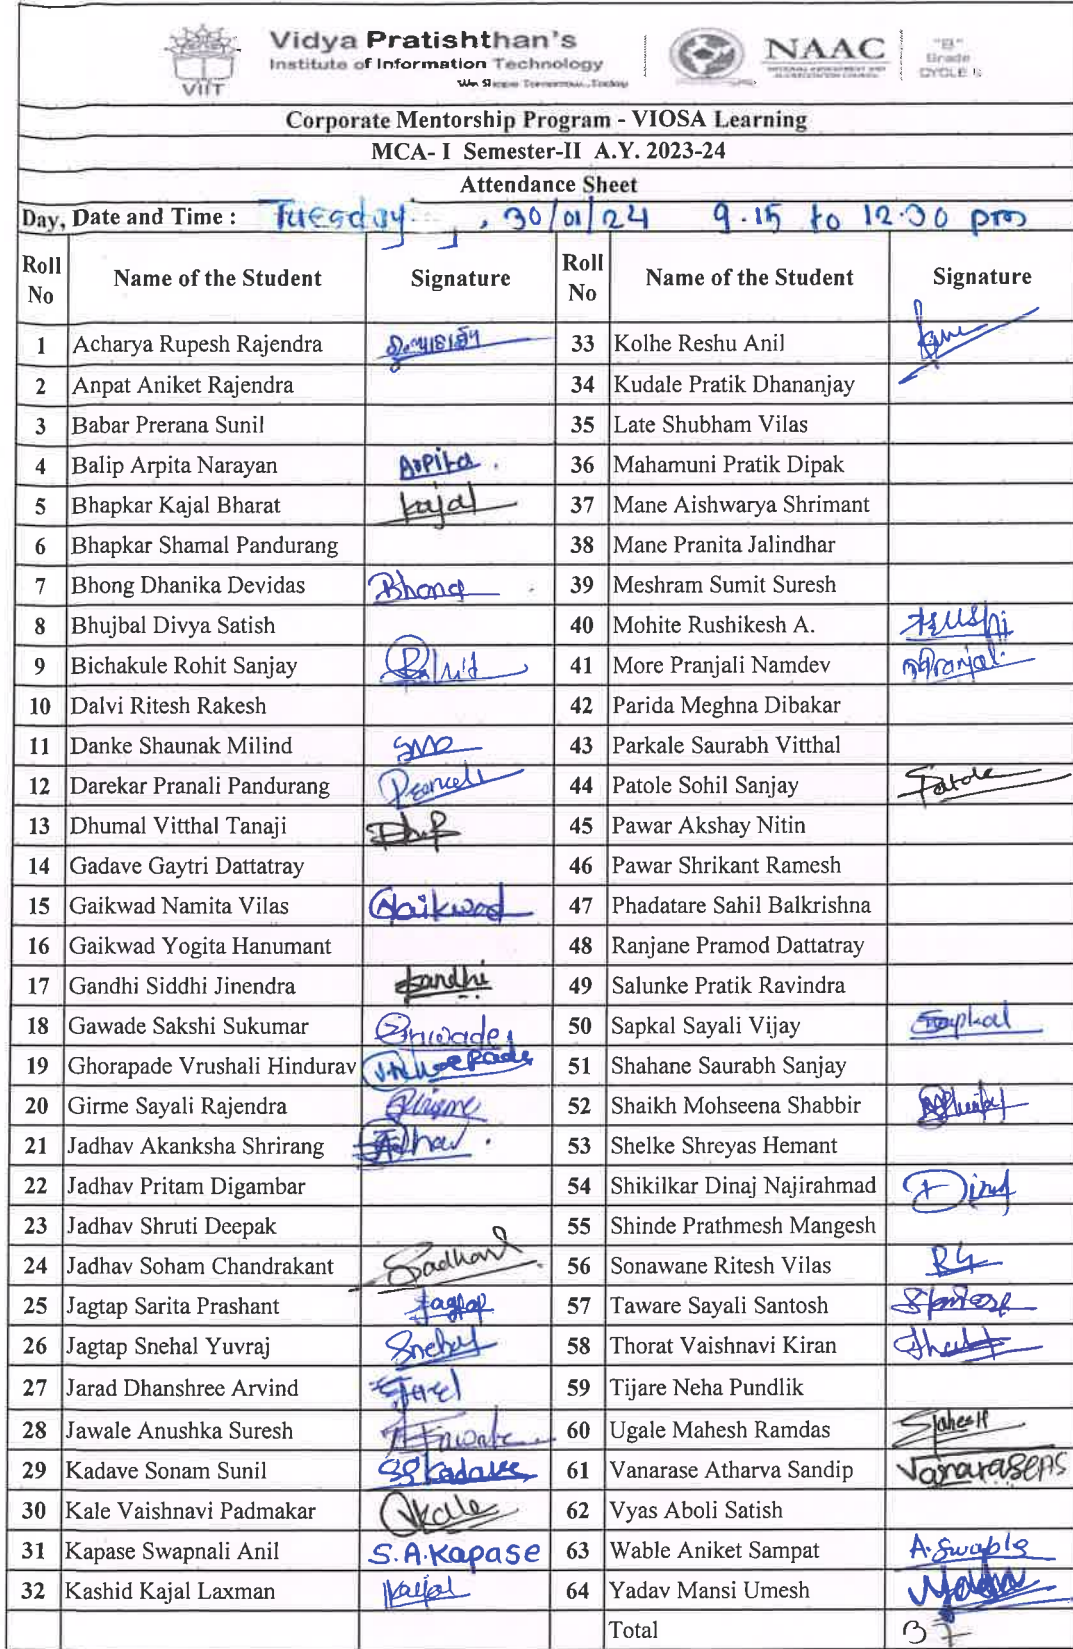 VIIT
Vidya Pratishthan's
Institute of Information Technology
We Shape Tomorrow...Today
NAAC
NATIONAL ASSESSMENT AND
ACCREDITATION COUNCIL
"B"
Grade
CYCLE
Corporate Mentorship Program - VIOSA Learning
MCA- I Semester-II A.Y. 2023-24
Attendance Sheet
Day, Date and Time : Tuesday , 30/01/24 9.15 to 12.30 pm
Roll No Name of the Student Signature Roll No Name of the Student Signature
1 Acharya Rupesh Rajendra 33 Kolhe Reshu Anil
2 Anpat Aniket Rajendra 34 Kudale Pratik Dhananjay
3 Babar Prerana Sunil 35 Late Shubham Vilas
4 Balip Arpita Narayan Arpita. 36 Mahamuni Pratik Dipak
5 Bhapkar Kajal Bharat kajal 37 Mane Aishwarya Shrimant
6 Bhapkar Shamal Pandurang 38 Mane Pranita Jalindhar
7 Bhong Dhanika Devidas Bhong 39 Meshram Sumit Suresh
8 Bhujbal Divya Satish 40 Mohite Rushikesh A.
9 Bichakule Rohit Sanjay 41 More Pranjali Namdev
10 Dalvi Ritesh Rakesh 42 Parida Meghna Dibakar
11 Danke Shaunak Milind 43 Parkale Saurabh Vitthal
12 Darekar Pranali Pandurang 44 Patole Sohil Sanjay Patole
13 Dhumal Vitthal Tanaji 45 Pawar Akshay Nitin
14 Gadave Gaytri Dattatray 46 Pawar Shrikant Ramesh
15 Gaikwad Namita Vilas Gaikwad 47 Phadatare Sahil Balkrishna
16 Gaikwad Yogita Hanumant 48 Ranjane Pramod Dattatray
17 Gandhi Siddhi Jinendra Gandhi 49 Salunke Pratik Ravindra
18 Gawade Sakshi Sukumar Gawade 50 Sapkal Sayali Vijay Sapkal
19 Ghorapade Vrushali Hindurav 51 Shahane Saurabh Sanjay
20 Girme Sayali Rajendra Girme 52 Shaikh Mohseena Shabbir
21 Jadhav Akanksha Shrirang Jadhav. 53 Shelke Shreyas Hemant
22 Jadhav Pritam Digambar 54 Shikilkar Dinaj Najirahmad
23 Jadhav Shruti Deepak 55 Shinde Prathmesh Mangesh
24 Jadhav Soham Chandrakant Jadhav 56 Sonawane Ritesh Vilas
25 Jagtap Sarita Prashant Jagtap 57 Taware Sayali Santosh
26 Jagtap Snehal Yuvraj Snehal 58 Thorat Vaishnavi Kiran
27 Jarad Dhanshree Arvind 59 Tijare Neha Pundlik
28 Jawale Anushka Suresh 60 Ugale Mahesh Ramdas
29 Kadave Sonam Sunil SSKadave 61 Vanarase Atharva Sandip VanaraseAS
30 Kale Vaishnavi Padmakar Vkale 62 Vyas Aboli Satish
31 Kapase Swapnali Anil S.A.Kapase 63 Wable Aniket Sampat
32 Kashid Kajal Laxman Kajal 64 Yadav Mansi Umesh
Total 37